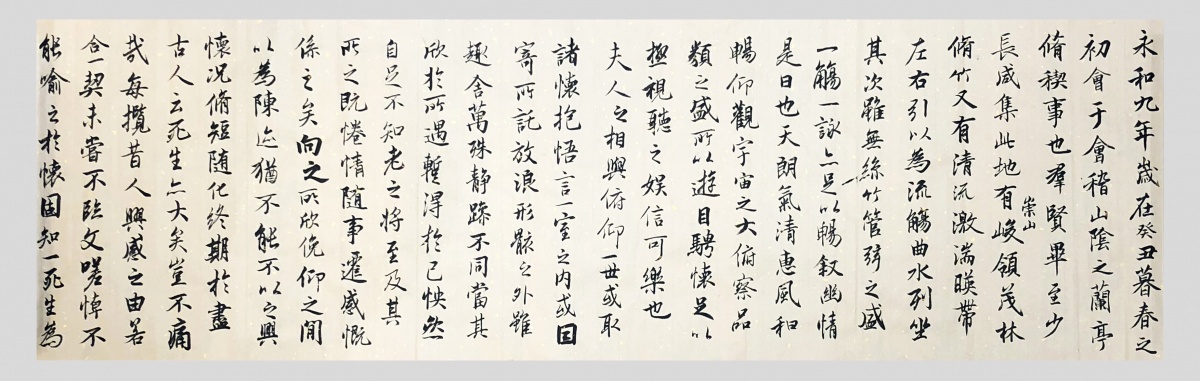 永和九年歲在癸丑暮春之
初會于會稽山陰之蘭亭
脩稧事也羣賢畢至少
崇山
長咸集此地有峻領茂林
脩竹又有清流激湍暎帶
左右引以為流觴曲水列坐
其次雖無絲竹管弦之盛
一觴一詠亦足以暢叙幽情
是日也天朗氣清惠風和
暢仰觀宇宙之大俯察品
類之盛所以遊目騁懷足以
極視聽之娛信可樂也
夫人之相與俯仰一世或取
諸懷抱悟言一室之内或因
寄所託放浪形骸之外雖
趣舍萬殊静躁不同當其
欣於所遇蹔得於己怏然
自足不知老之將至及其
所之既惓情隨事遷感慨
係之矣向之所欣俛仰之間
以為陳迹猶不能不以之興
懷況脩短隨化終期於盡
古人云死生亦大矣豈不痛
哉每攬昔人興感之由若
合一契未嘗不臨文嗟悼不
能喻之於懷固知一死生為